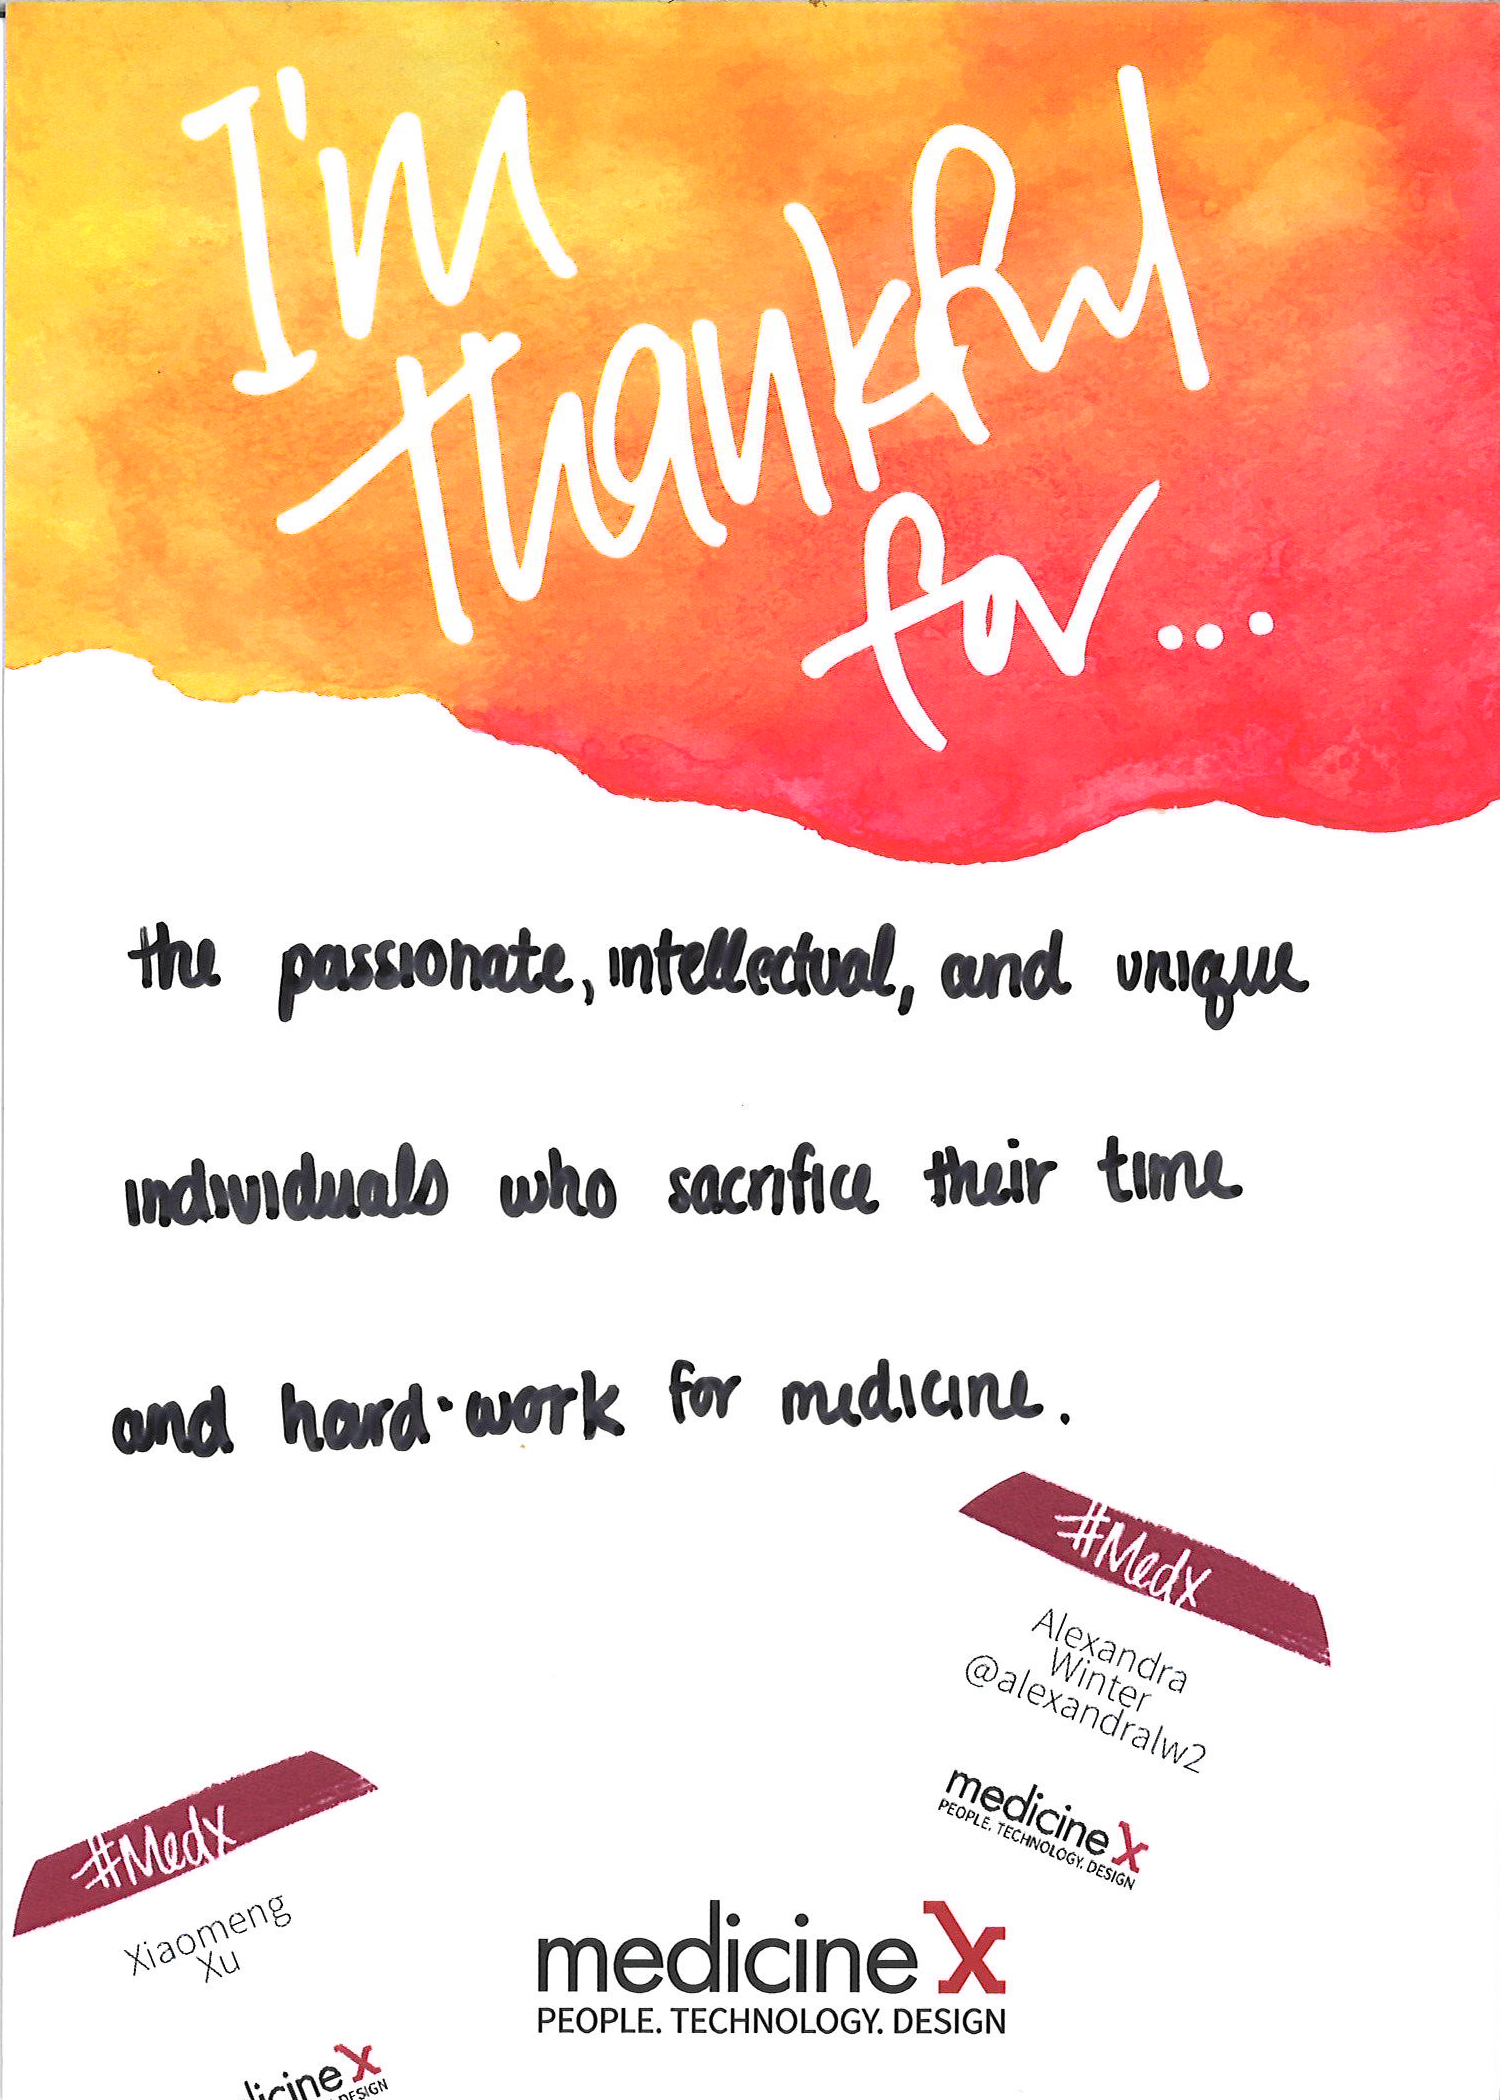 I'm
thankful
for...
the passionate, intellectual, and unique
individuals who sacrifice their time
and hard-work for medicine.
#Medx
Alexandra
Winter
@alexandralw2
medicine X
PEOPLE. TECHNOLOGY. DESIGN
#Medx
Xiaomeng
Xu
medicine X
PEOPLE. TECHNOLOGY. DESIGN
licine X
DESIGN